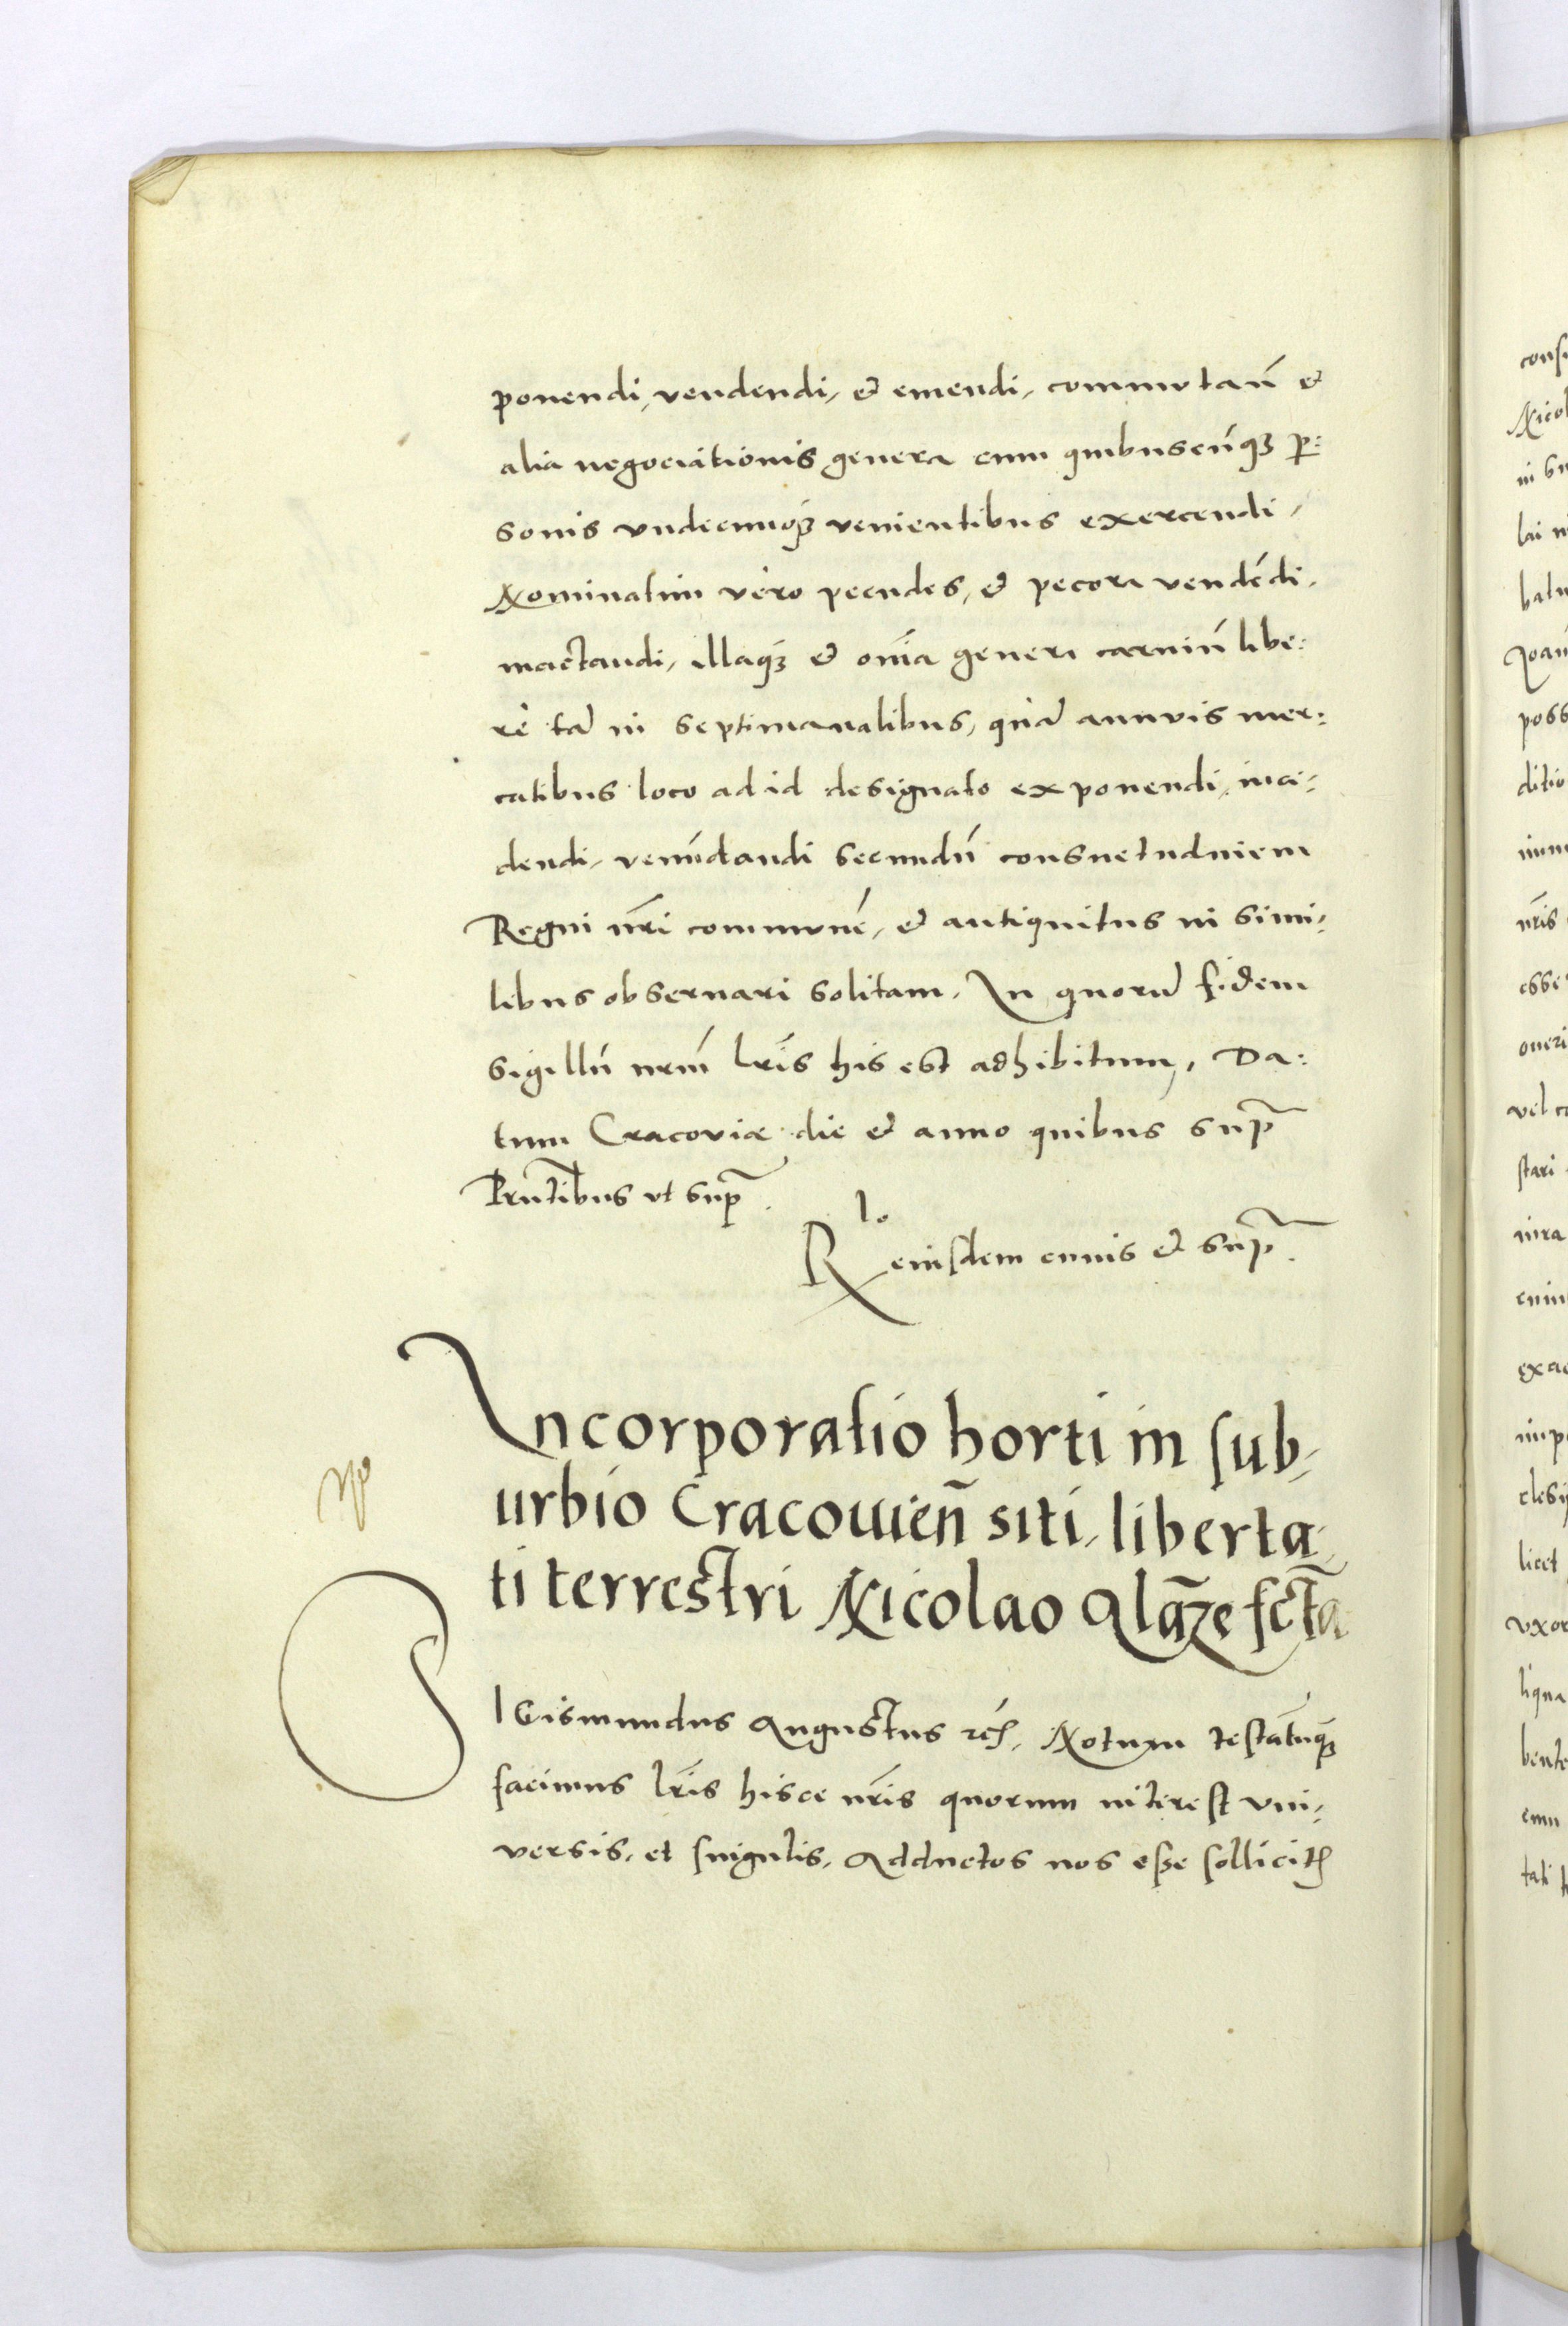 ponendi, vendendi, & emendi, commutan̄ &
alia negociationis genera cum quibuscūq₃ p̱:
sonis vndecunq₃ venientibus exercendi,
Nominatim vero pecudes, & pecora vendēdi,
mactandi, illaq₃ & oīa genera carniū libe:
re tā in septimanalibus, quā annuis mer:
catibus loco ad id designato exponendi, inci,
dendi, venūdandi secundū consuetudinem
Regni nr̄i communē, & antiquitus in simi,
libus obseruari solitam. In quorū fidem
sigillū nrm̄ lr̄is his est adhibitum, Da:
tum Cracoviæ die & anno quibus sup̄
Prn̄tibus vt sup̄.
Rlo eiusdem cuius & sup̄.
Incorporatio horti in sub,
urbio Cracouień siti, liberta,
ti terrestri Nicolao Glāze fct̄a
SIGismundus Augustus rc̄, Notum testatūq₃
facimus lr̄is hisce nr̄is quorum interest vni,
versis, et singulis, Adductos nos esse sollicit
consu
Nicol
lai
Joan
poss
ditio
nr̄is
esse
oneri
stari
exac
licet
vxor
tali